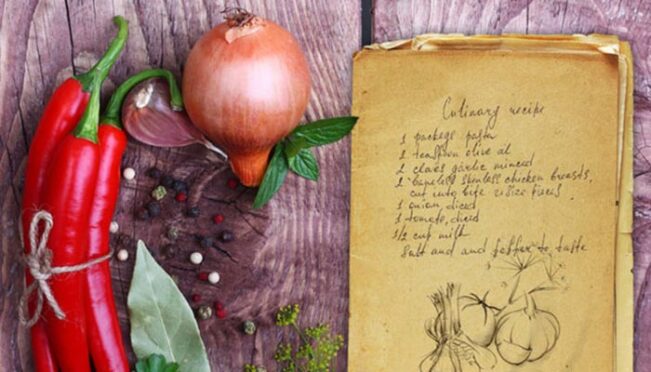 Culinary recipe
1 package pasta
1 teaspoon olive oil
2 cloves garlic minced
2 boneless skinless chicken breasts,
cut into bite resize pieces
1 onion, diced
1 tomato, diced
1/2 cup milk
Salt and and pepper to taste